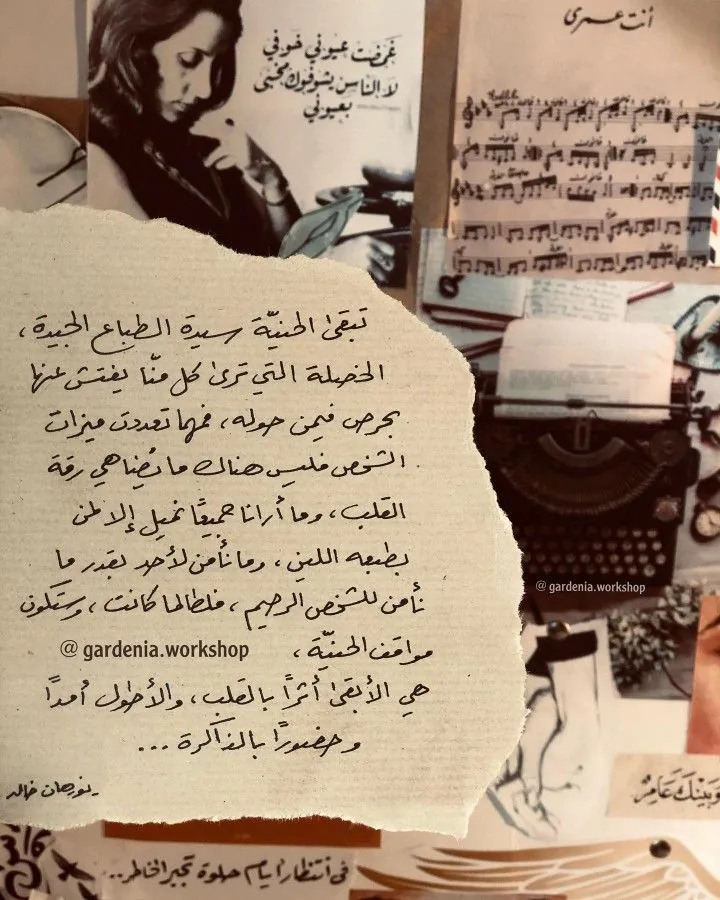 أنت عمري
غمضت عيوني خوفي
لا الناس يشوفوك مخبى
بعيوني
تبقى الحنيّة سيدة الطباع الجيدة،
الخصلة التي ترى كل منّا يفتش عنها
بحرص فيمن حوله، فمهما تعددت ميزات
الشخص فليس هناك ما يُضاهي رقة
القلب، وما أرانا جميعًا نميل إلا لمن
بطبعه اللين، وما نأمن لأحد بقدر ما
نأمن للشخص الرحيم، فلطالما كانت، وستكون
مواقف الحنيّة،
@ gardenia.workshop
هي الأبقى أثرًا بالقلب، والأطول أمدًا
وحضورًا بالذاكرة ...
نورهان خالد
@ gardenia.workshop
وبَيْنَكَ عَامِرٌ
في انتظار أيام حلوة تجبر الخاطر..